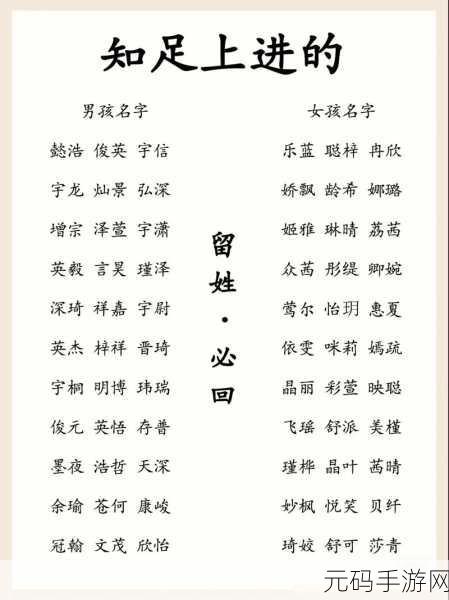 知足上进的
男孩名字
懿浩 俊英 宇信
宇龙 灿景 弘深
增宗 泽萱 宇潇
英毅 言昊 瑾泽
深琦 祥嘉 宇尉
英杰 梓祥 晋琦
宇桐 明博 玮瑞
俊元 英悟 存普
墨夜 浩哲 天深
余瑜 苍何 康峻
冠翰 文茂 欣怡
留姓·必回
女孩名字
乐蓝 聪梓 冉欣
娇飘 龄希 娜璐
姬雅 琳晴 荔茜
众茜 彤缇 卿婉
莺尔 怡玥 惠夏
依雯 咪莉 嫣疏
晶丽 彩萱 映聪
飞瑶 舒派 美槿
瑾桦 晶叶 茜晴
妙枫 悦笑 贝纤
琦姣 舒可 莎青
元码手游网